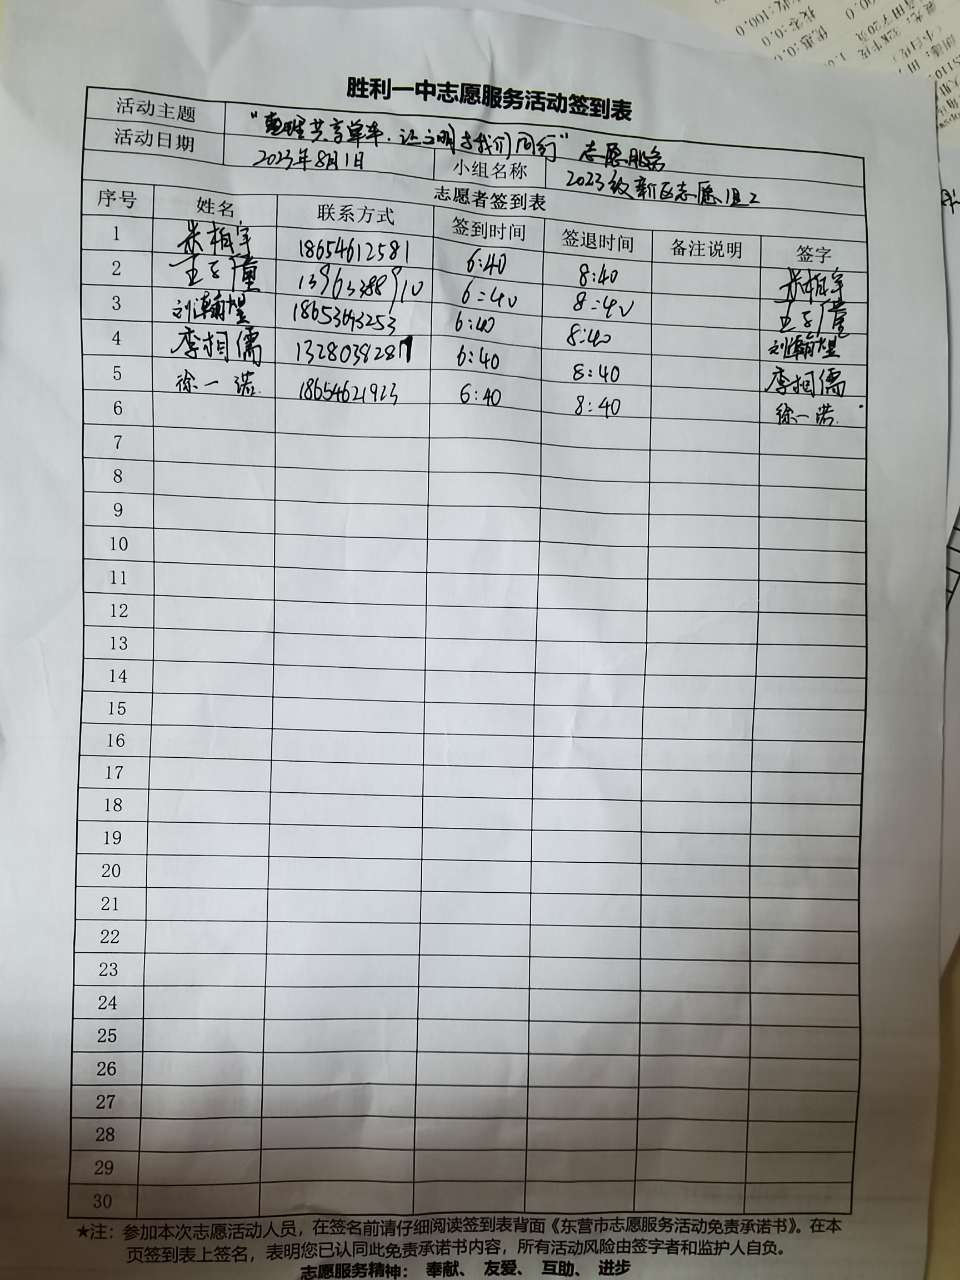 胜利一中志愿服务活动签到表
活动主题 "整理共享单车,让文明与我们同行"志愿服务
活动日期 2023年8月1日 小组名称 2023级新区志愿组2
志愿者签到表
序号 姓名 联系方式 签到时间 签退时间 备注说明 签字
1 柏宇 18654612581 6:40 8:40 柏宇
2 王子 13963388910 6:40 8:40 王子
3 刘瀚 18653693253 6:40 8:40 刘瀚
4 李相儒 1328038281 6:40 8:40 李相儒
5 徐一诺 18654621923 6:40 8:40 徐一诺
6
7
8
9
10
11
12
13
14
15
16
17
18
19
20
21
22
23
24
25
26
27
28
29
30
★注:参加本次志愿活动人员,在签名前请仔细阅读签到表背面《东营市志愿服务活动免责承诺书》。在本
页签到表上签名,表明您已认同此免责承诺书内容,所有活动风险由签字者和监护人自负。
志愿服务精神: 奉献、 友爱、 互助、 进步